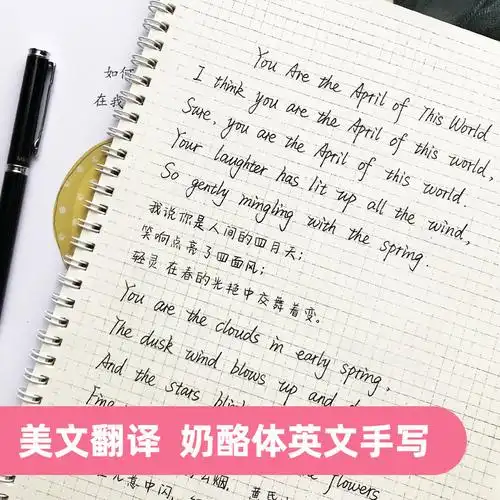 如何
在我
You Are the April of This World
I think you are the April of this world,
Sure, you are the April of this world.
Your laughter has lit up all the wind,
So gently mingling with the spring.
我说你是人间的四月天；
笑响点亮了四面风；
轻灵在春的光艳中交舞着变。
You are the clouds in early spring,
The dusk wind blows up and
And the stars
美文翻译 奶酪体英文手写
flowers